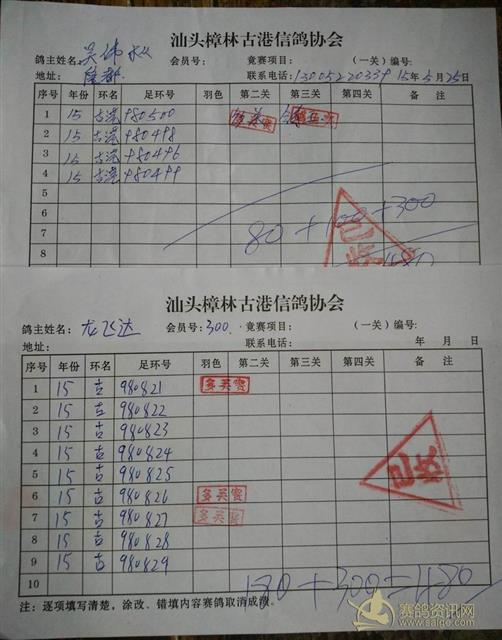 汕头樟林古港信鸽协会
鸽主姓名: 吴伟 会员号: 竟赛项目: （一关）编号:
地址: 联系电话: 13005220339 15年5月25日
序号 年份 环名 足环号 羽色 第二关 第三关 第四关 备注
1 15 古港 980500
2 15 古港 980498
3 15 古港 980496
4 15 古港 980499
5
6
7 80+100+300
8 已收
汕头樟林古港信鸽协会
鸽主姓名: 龙飞达 会员号: 300 竟赛项目: （一关）编号:
地址: 联系电话: 年 月 日
序号 年份 环名 足环号 羽色 第二关 第三关 第四关 备注
1 15 古 980821 多关赛
2 15 古 980822
3 15 古 980823
4 15 古 980824
5 15 古 980825 已收
6 15 古 980826 多关赛
7 15 古 980827 多关赛
8 15 古 980828
9 15 古 980829
10 180+300=480
注: 逐项填写清楚，涂改、错填内容赛鸽取消成绩。
赛鸽资讯网
www.saige.com